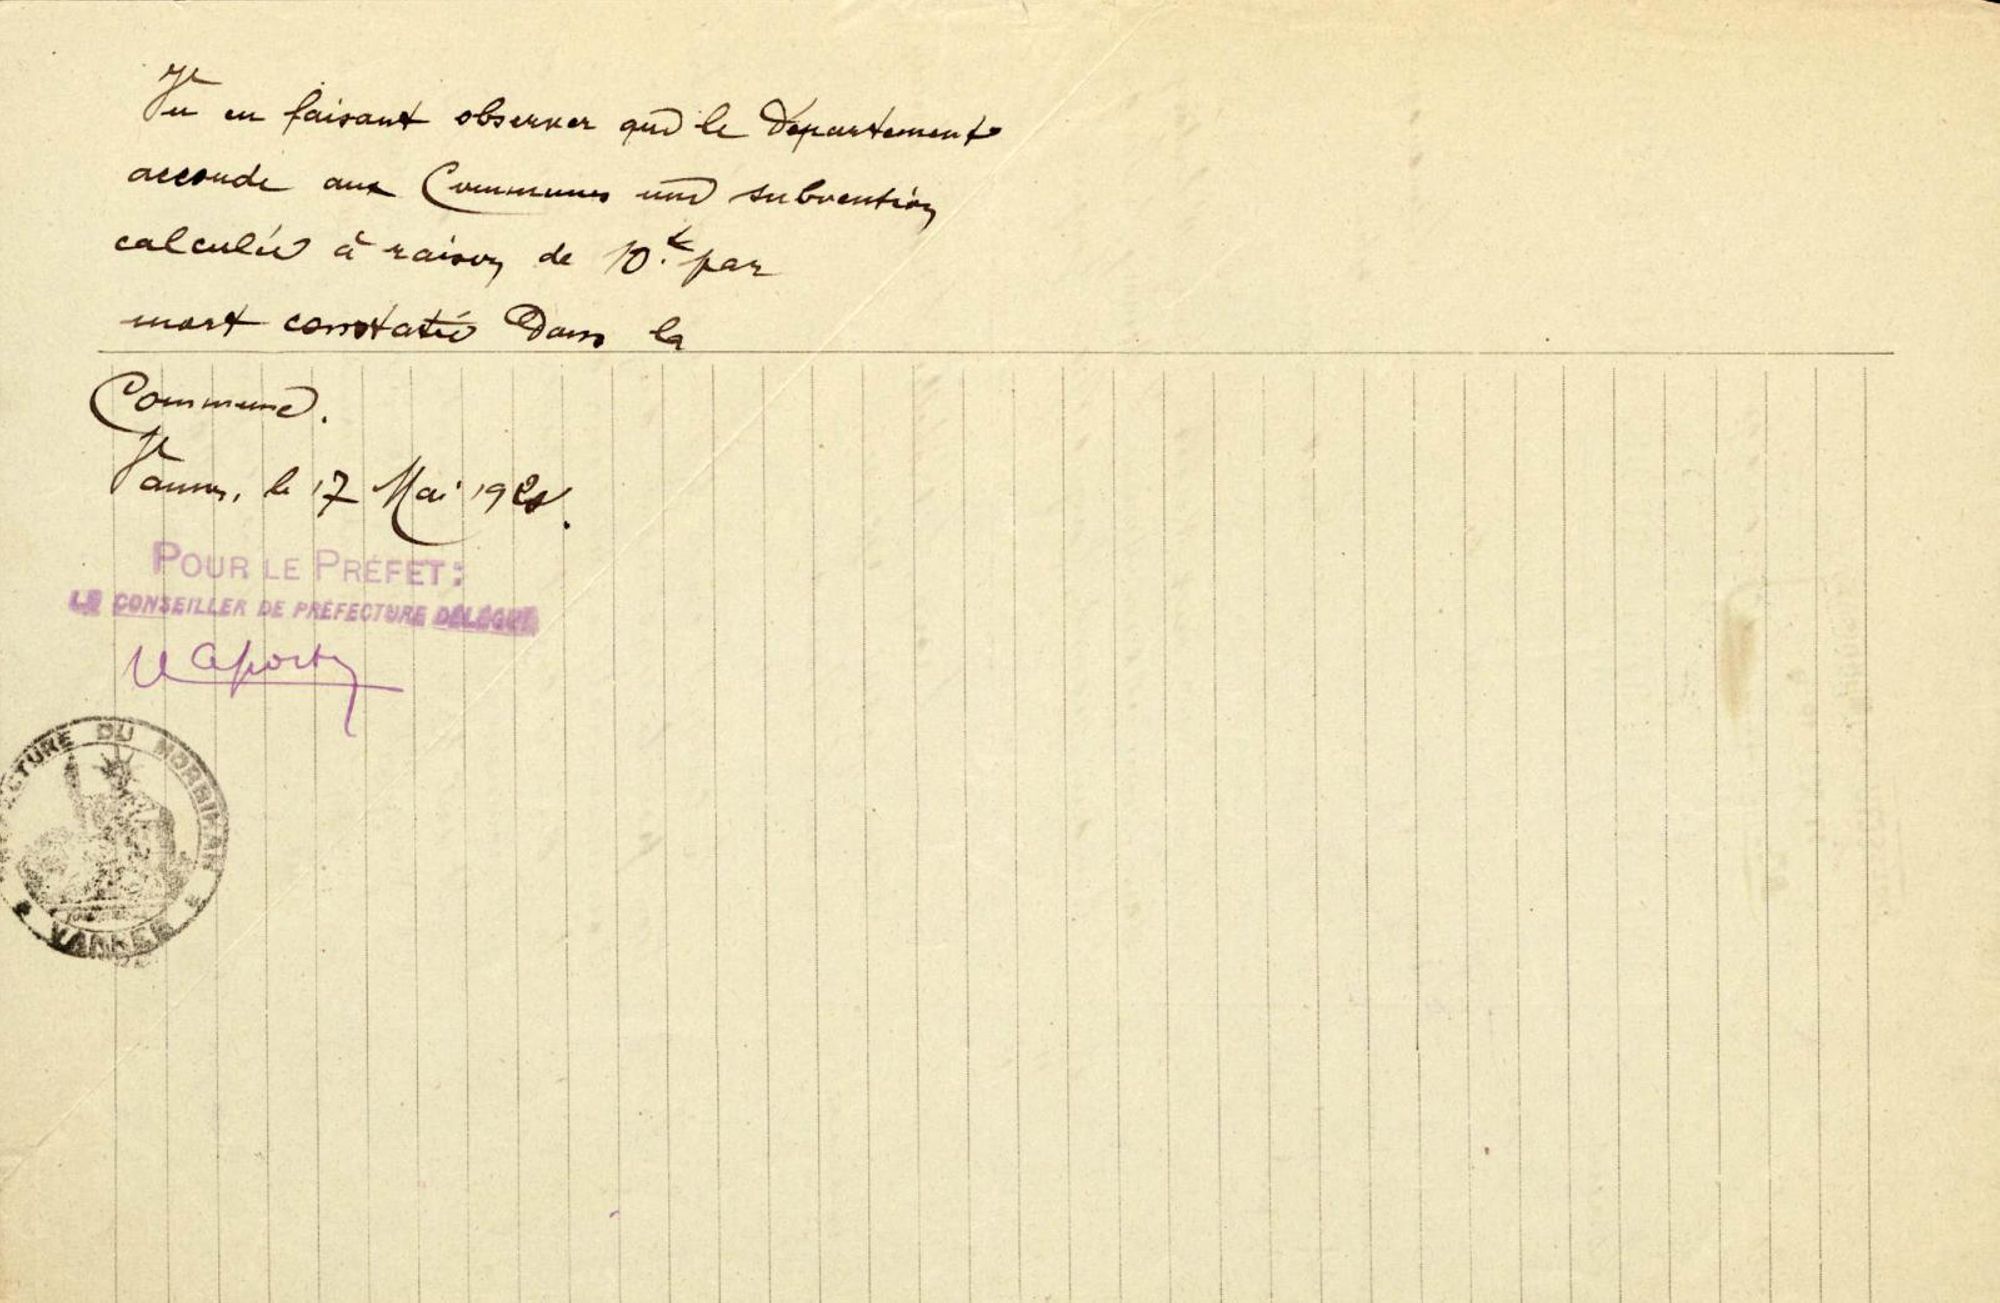 Vu en faisant observer que le Département
accorde aux Communes une subvention
calculée à raison de 10.c par
mort constatée Dans la
Commune.
Vannes, le 17 Mai 192
POUR LE PRÉFET:
LE CONSEILLER DE PRÉFECTURE DÉLÉGUÉ
PRÉFECTURE DU MORBIHAN
VANNES